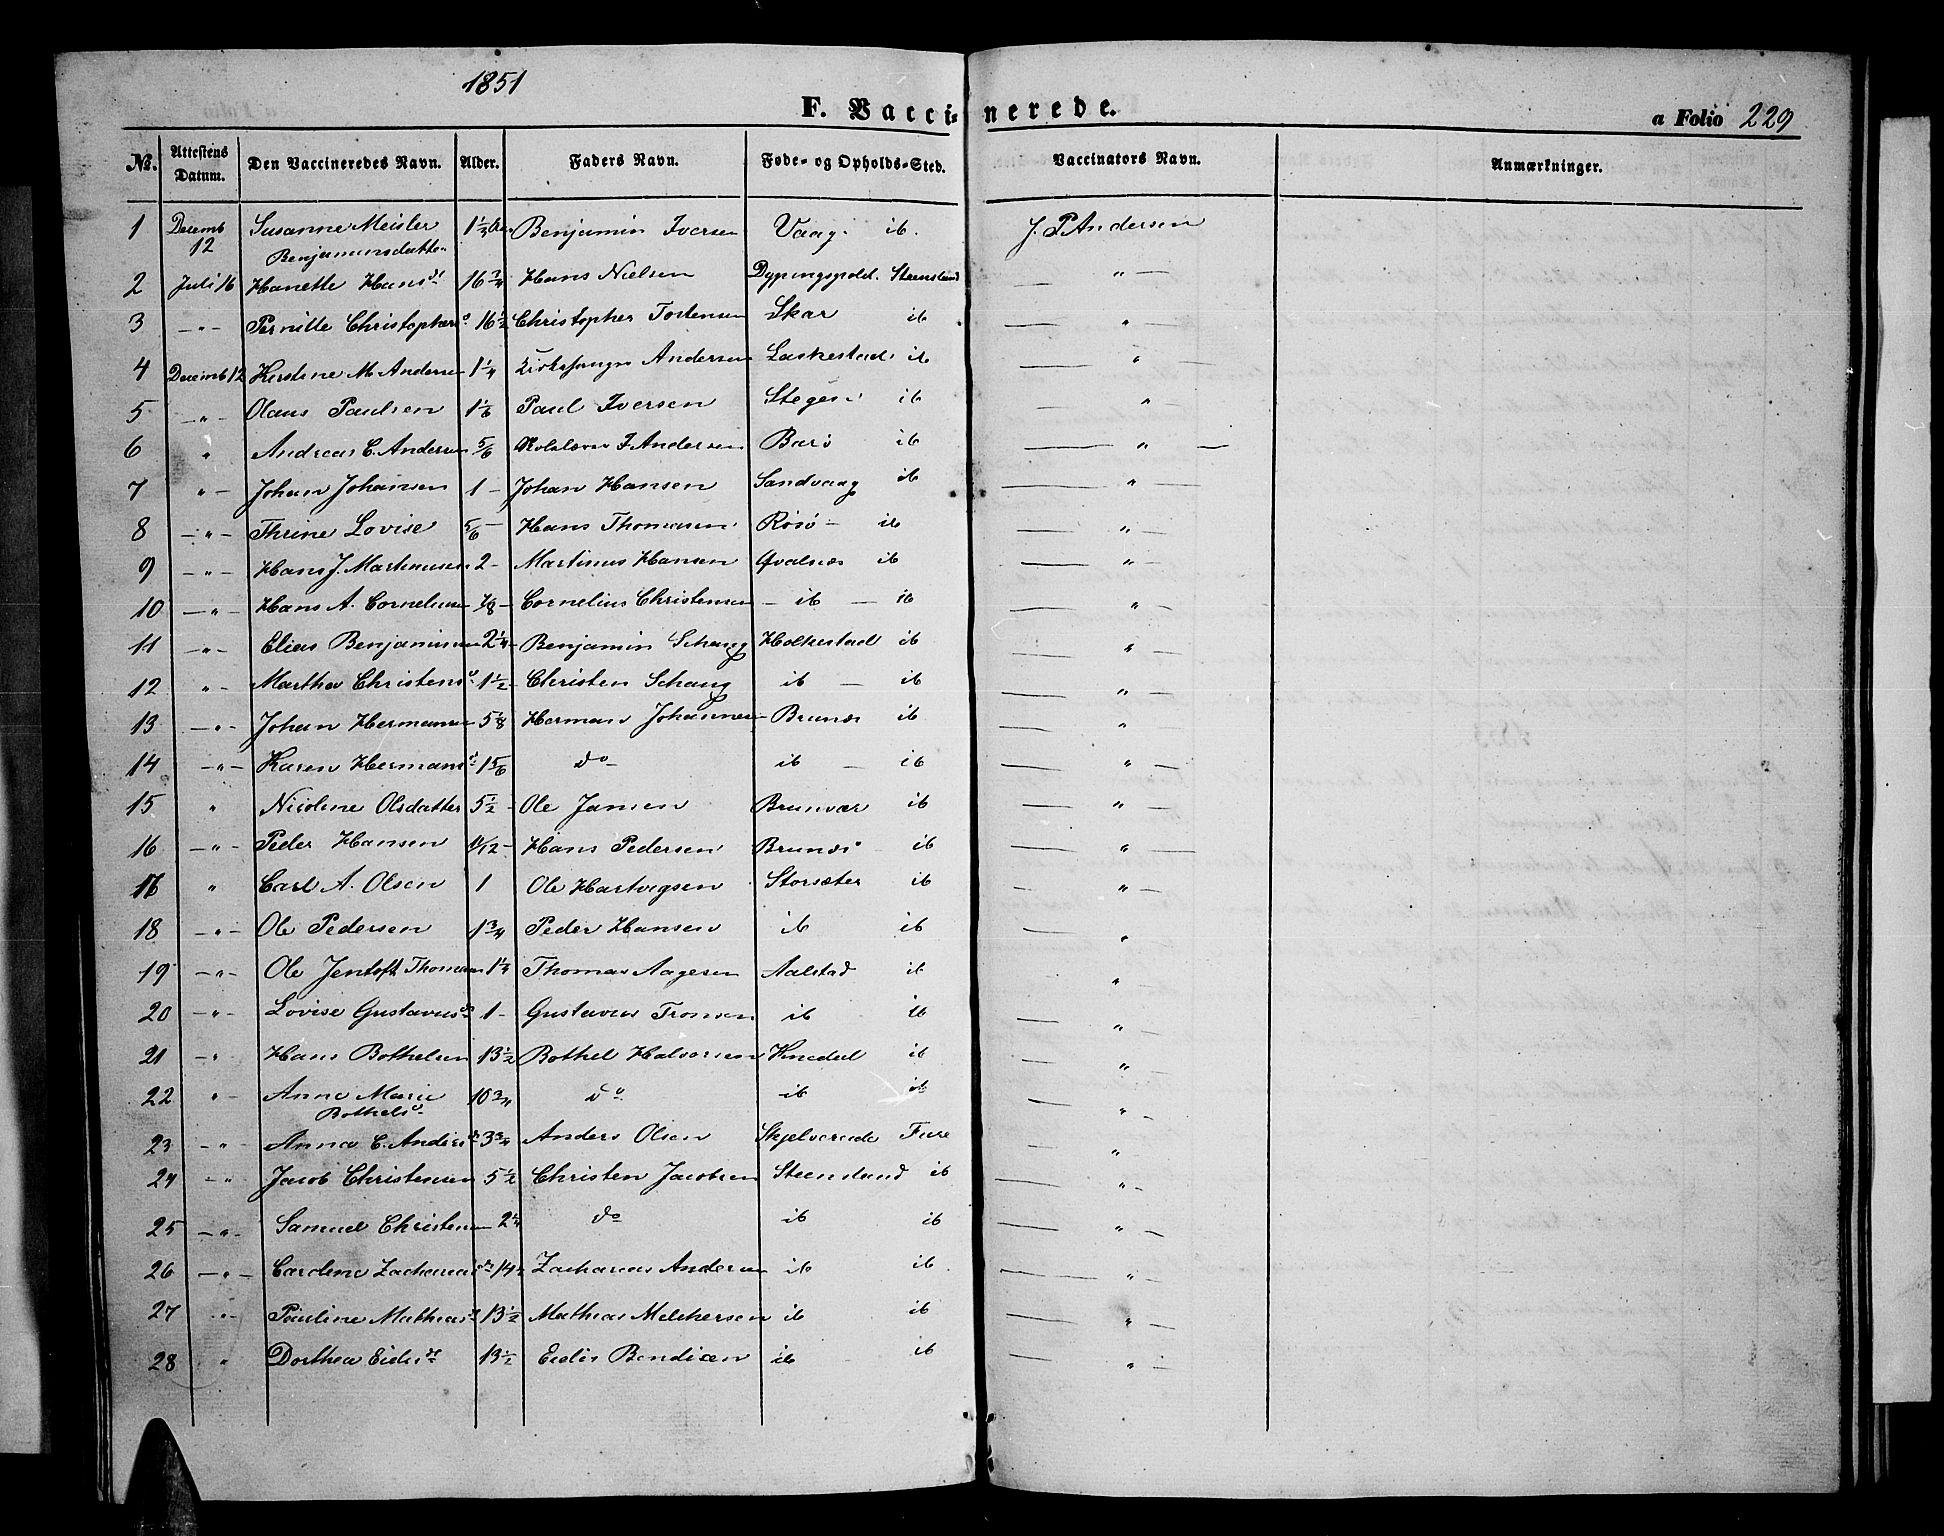 1851
F. Vaccinerede.
a Folio 229
No. Attestens Datum. Den Vaccineredes Navn. Alder. Faders Navn. Føde- og Opholds-Sted. Vaccinators Navn. Anmærkninger.
1 Decemb 12 Susanne Meisler Benjaminsdatter 1 1/2 Benjamin Iversen Vaag. ib. J. P Andersen
2 Juli 16 Hanette Hansd. 16 3/4 Hans Nielsen Steensland — " —
3 — " — Pernille Christophersd 16 1/2 Christopher Tostensen Skar ib — " —
4 Decemb 12 Kirstine M. Andersen 1 1/4 Kirkesanger Andersen Laskestad ib — " —
5 — " — Olaus Paulsen 1 1/6 Paul Iversen Stegen ib — " —
6 " Andreas C. Andersen 5/6 Skolelærer J. Andersen Barø ib — " —
7 — " — Johan Johansen 1 — Johan Hansen Sandvaag ib — " —
8 — " — Thrine Lovise 5/6 — Hans Thomasen Røsø — ib — " —
9 — " — Hans J. Martinusen 2 — Martinus Hansen Qvalnæs ib — " —
10 — " — Hans A. Corneliusen 7/8 — Cornelius Christensen — ib — ib — " —
11 — " — Elias Benjaminsen 2 1/4 Benjamin Schang Holkestad ib — " —
12 " — Martha Christensd. 1 1/2 — Christen Schang ib — ib — " —
13 — " — Johan Hermansen 5 1/8 Herman Johannesen Brunæs ib — "
14 — " — Karen Hermansd. 1 5/6 do ib — ib — " —
15 " Nicoline Olsdatter 5 1/2 — Ole Jansen Brunvær ib — " —
16 — " — Peder Hansen 11/12 — Hans Pedersen Brunæs ib — " —
17 " Carl A. Olsen 1 Ole Hartvigsen Storsæter ib " —
18 — " — Ole Pedersen 1 3/4 Peder Hansen ib ib — "
19 — " — Ole Jentoft Thomasen 1 1/4 Thomas Aagesen Aalstad ib " —
20 — " — Lovise Gustavusd. 1 — Gustavus Tronsen ib ib — " —
21 — " Hans Bothelsen 13 1/2 Bothel Halvorsen ib — " —
22 " — Anne Marie Bothelsd. 10 3/4 do ib ib — " —
23 — " Anna C. Andersd. 3 3/4 Anders Olsen " —
24 — " Jacob Christensen 5 1/2 Christen Jacobsen Steensland ib — " —
25 — " — Samuel Christensen 2 1/4 do ib ib — " —
26 — " — Zachariasd. 14 1/2 Zacharias Andersen ib ib — " —
27 — " — Pauline Mathiasd. 13 1/2 Mathias Melchersen ib ib — " —
28 " Dorthea 13 1/2 Bendixen ib ib — " —